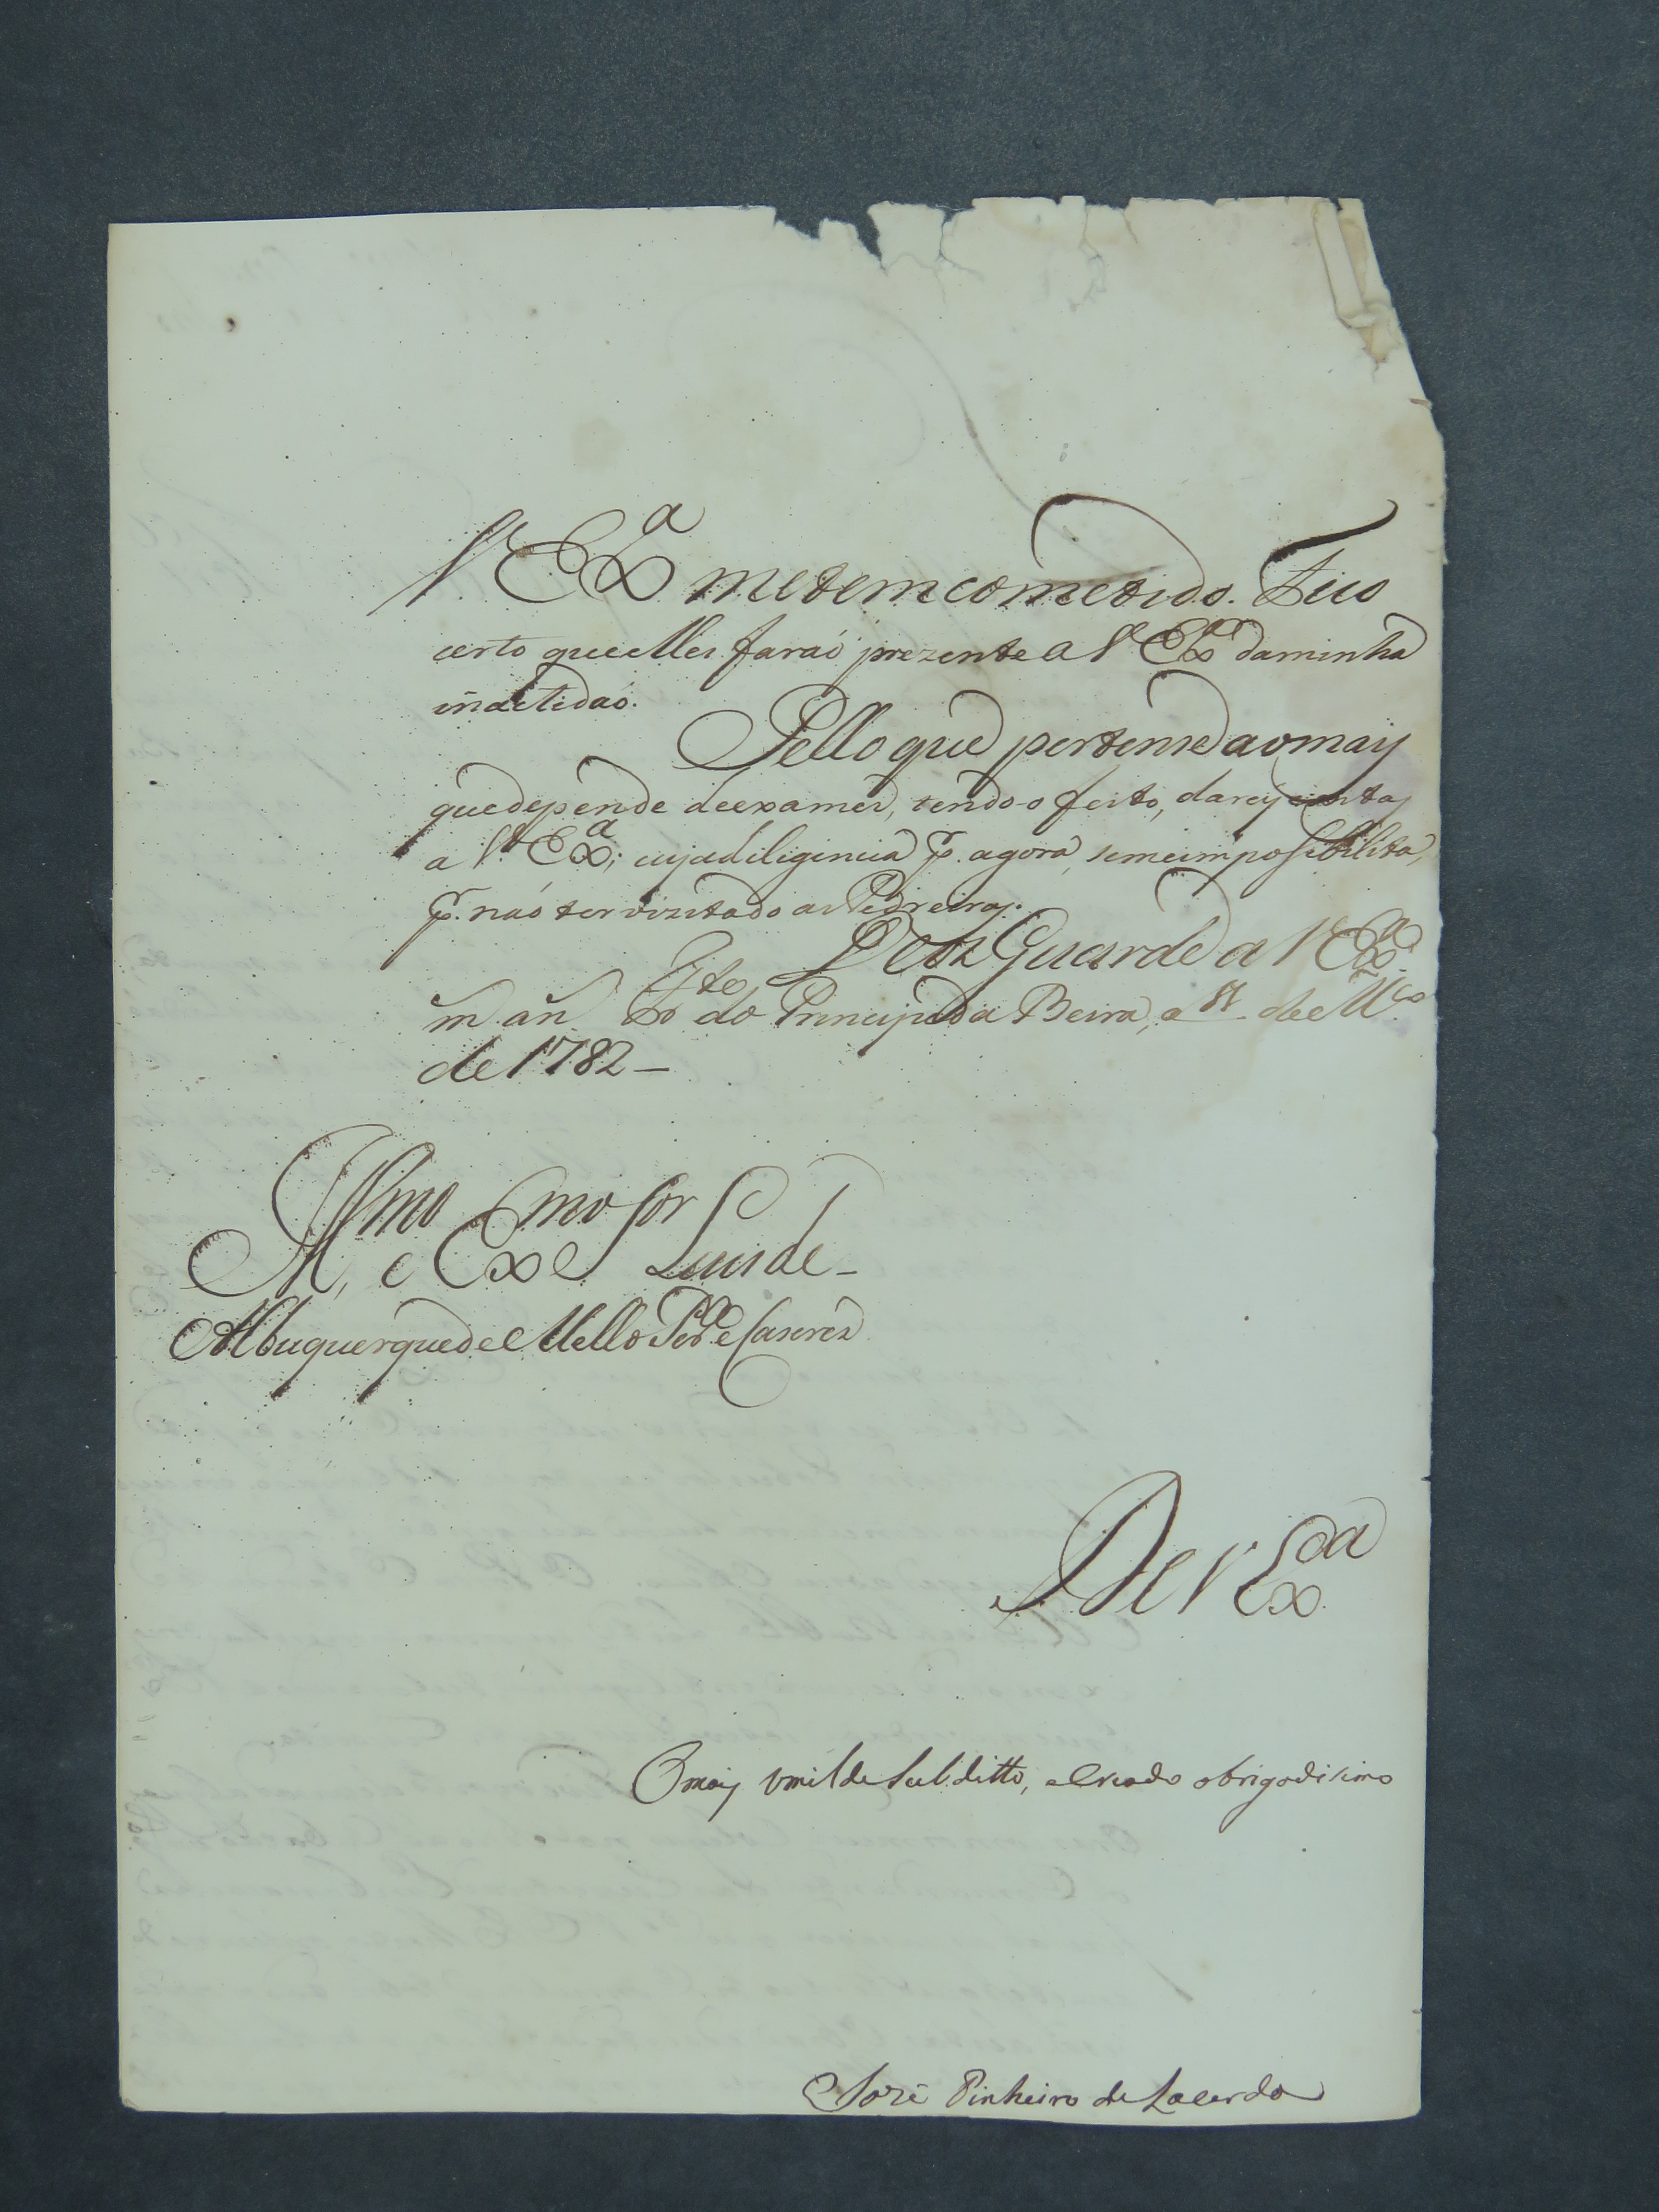 V. Exa. me tem cometido. Fico
certo que elles faraó prezente a V. Exa. da minha
inactidaó.
Pello que pertense ao mais
que depende de exames, sendo-o feito, darey conta
a V. Exa.; cuja diligencia p.r agora, se me imposibilita,
p.r naó ter vizitado as Pedreiras.
Deos Guarde a V. Exa.
m. an. Fte. do Principe da Beira, a de Mço
de 1782 —
Illmo. e Exmo. Sor. Luis de —
Albuquerque de Mello Pera. e Caseres
De V. Exa.
O mais umilde Subditto, e criado obrigadisimo
Jozé Pinheiro de Lacerda